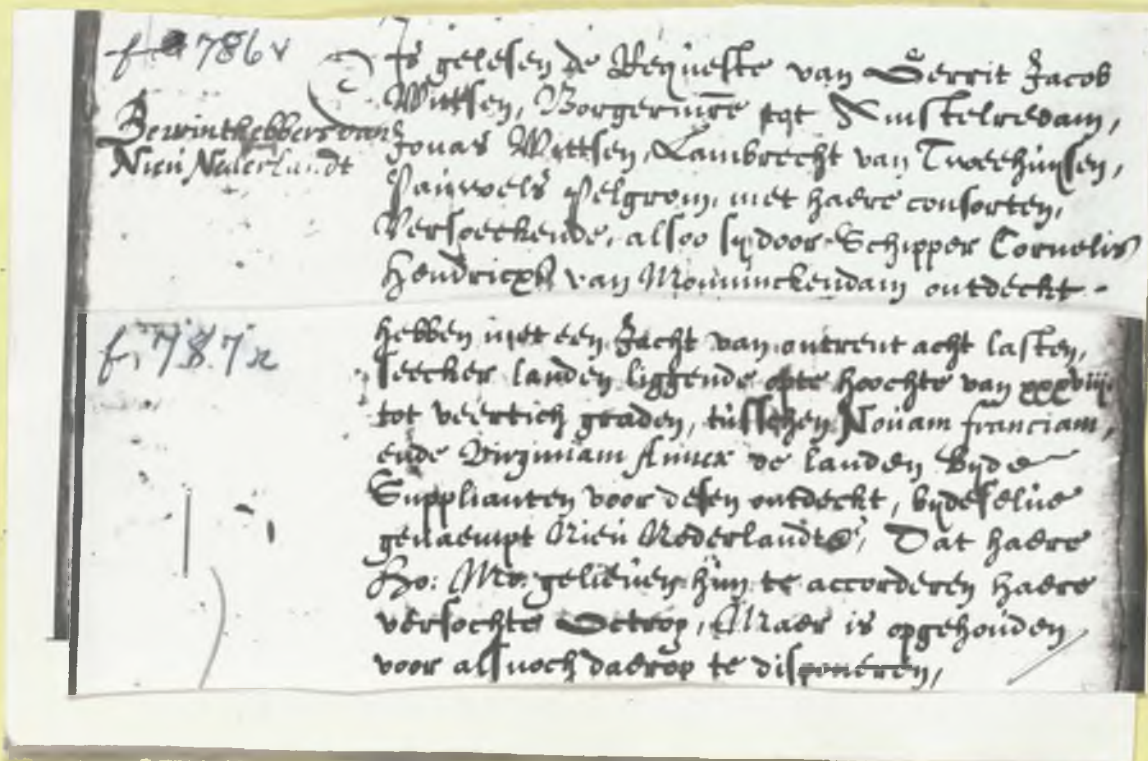 f 786 v
Bewinthebbers van
Nieu Nederlandt
Is gelesen de Requeste van Gerrit Jacob
Wittsen, Borgermre tot Amstelredam,
Jonas Wittsen, Lambrecht van Tweehuijsen,
Pauwels Pelgrom, met haere consorten,
Versoeckende, alsoo sij door Schipper Cornelis
Hendricxß van Monnickendam ontdeckt
f. 787 r
hebben met een Jacht van ontrent acht lasten,
seecker landen liggende opte hoochte van xxxviij
tot veertich graden, tusschen Novam franciam,
ende Virginiam de landen bijde
Supplianten voor desen ontdeckt, bijde selve
genaempt Nieu Nederlandt, Dat haere
Ho: Mo: gelieven hun te accorderen haere
versochte Octroy, Maer is opgehouden
voor alsnoch daerop te disponeren,